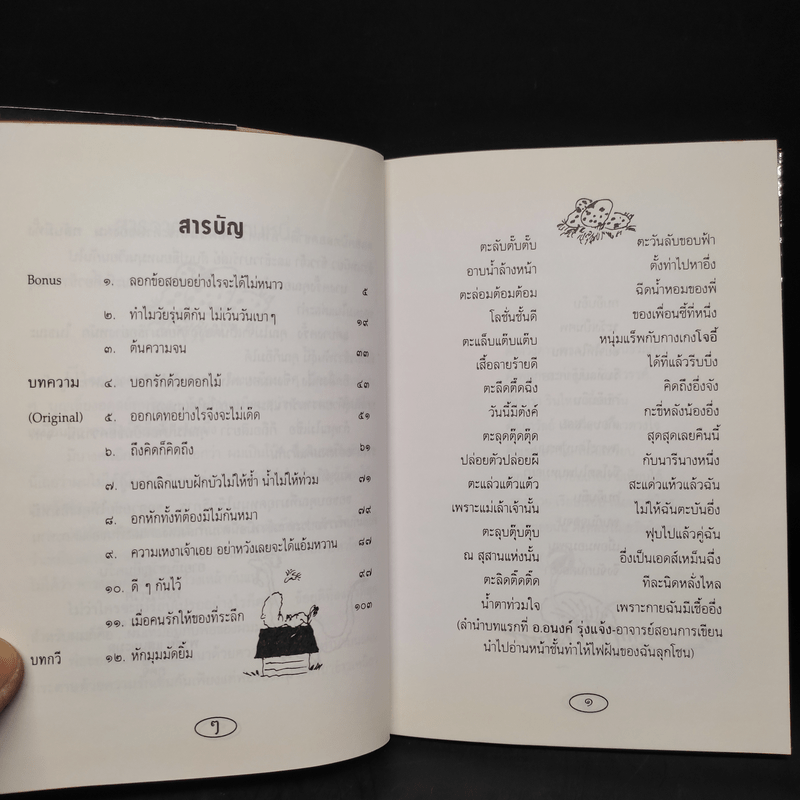 สารบัญ
Bonus ๑. ลอกข้อสอบอย่างไรจะได้ไม่หนาว ๕
๒. ทำไมวัยรุ่นตีกัน ไม่เว้นวันเบาๆ ๑๙
๓. ต้นความจน ๓๓
บทความ ๔. บอกรักด้วยดอกไม้ ๔๓
(Original) ๕. ออกเดทอย่างไรจึงจะไม่เด็ด ๕๑
๖. ถึงคิดก็คิดถึง ๖๑
๗. บอกเลิกแบบฝักบัวไม่ให้ช้ำ น้ำไม่ให้ท่วม ๗๑
๘. อกหักทั้งทีต้องมีไม้กันหมา ๗๙
๙. ความเหงาเจ้าเอย อย่าหวังเลยจะได้แอ้มหวาน ๘๗
๑๐. ดี ๆ กันไว้ ๙๗
๑๑. เมื่อคนรักให้ของที่ระลึก ๑๐๓
บทกวี ๑๒. หักมุมมัดยิ้ม
ๆ
ตะลับตั๊บตั๊บ ตะวันลับขอบฟ้า
อาบน้ำล้างหน้า ตั้งท่าไปหาอึ่ง
ตะล่อมต้อมต้อม ฉีดน้ำหอมของพี่
โลชั่นชั้นดี ของเพื่อนซี้ที่หนึ่ง
ตะแล็บแต๊บแต๊บ หนุ่มแร็พกับกางเกงโจอี้
เสื้อลายร้ายดี ได้ที่แล้วรีบบึ่ง
ตะลึดตึ๊ดฉึ่ง คิดถึงอึ่งจัง
วันนี้มีตังค์ กะขี่หลังน้องอึ่ง
ตะลุดตุ๊ดตุ๊ด สุดสุดเลยคืนนี้
ปล่อยตัวปล่อยผี กับนารีนางหนึ่ง
ตะแล่วแต้วแต้ว สะแด่วแห้วแล้วฉัน
เพราะแม่เล้าเจ้านั้น ไม่ให้ฉันตะบันอึ่ง
ตะลุบตุ๊บตุ๊บ ฟุบไปแล้วคู่ฉัน
ณ สุสานแห่งนั้น อึ่งเป็นเอดส์เหม็นฉึ่ง
ตะลิดติ๊ดติ๊ด ทีละนิดหลั่งไหล
น้ำตาท่วมใจ เพราะกายฉันมีเชื้ออึ่ง
(ลำนำบทแรกที่ อ.อนงค์ รุ่งแจ้ง-อาจารย์สอนการเขียน
นำไปอ่านหน้าชั้นทำให้ไฟฝันของฉันลุกโชน)
๑